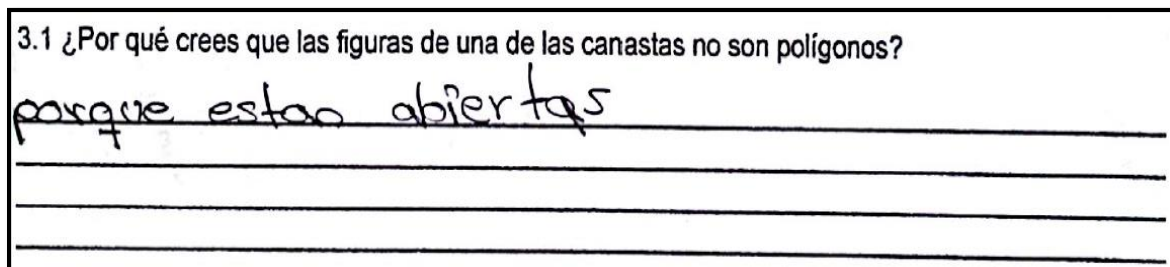 3.1 ¿Por qué crees que las figuras de una de las canastas no son polígonos?
porque estan abiertas